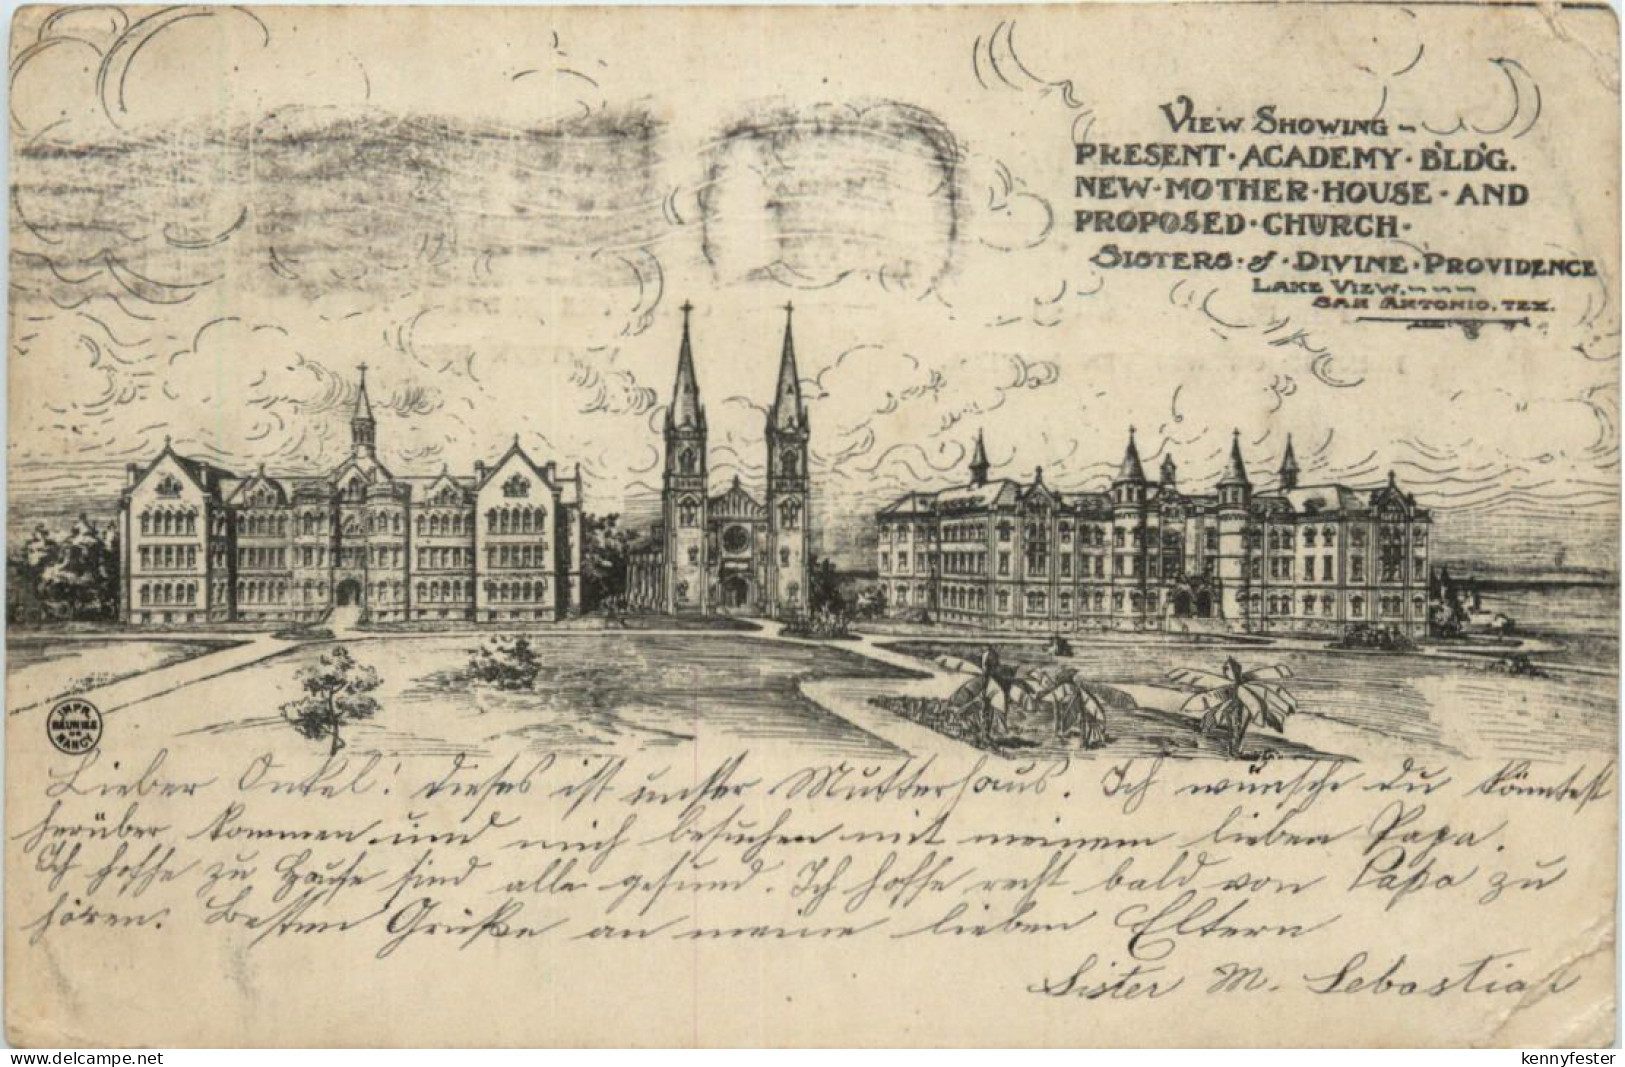 VIEW SHOWING -
PRESENT · ACADEMY · B'LD'G.
NEW · MOTHER · HOUSE · AND
PROPOSED · CHURCH ·
SISTERS · of · DIVINE · PROVIDENCE
LAKE VIEW. - - -
SAN ANTONIO, TEX.
IMPR.
REUNIES
DE
NANCY
Lieber Onkel! dieses ist unser Mutterhaus. Ich wünsche du könntest
herüber kommen und mich besuchen mit meinem lieben Papa.
Ich hoffe zu Hause sind alle gesund. Ich hoffe recht bald von Papa zu
hören. Besten Grüße an meine lieben Eltern
Sister M. Sebastian
www.delcampe.net
kennyfester